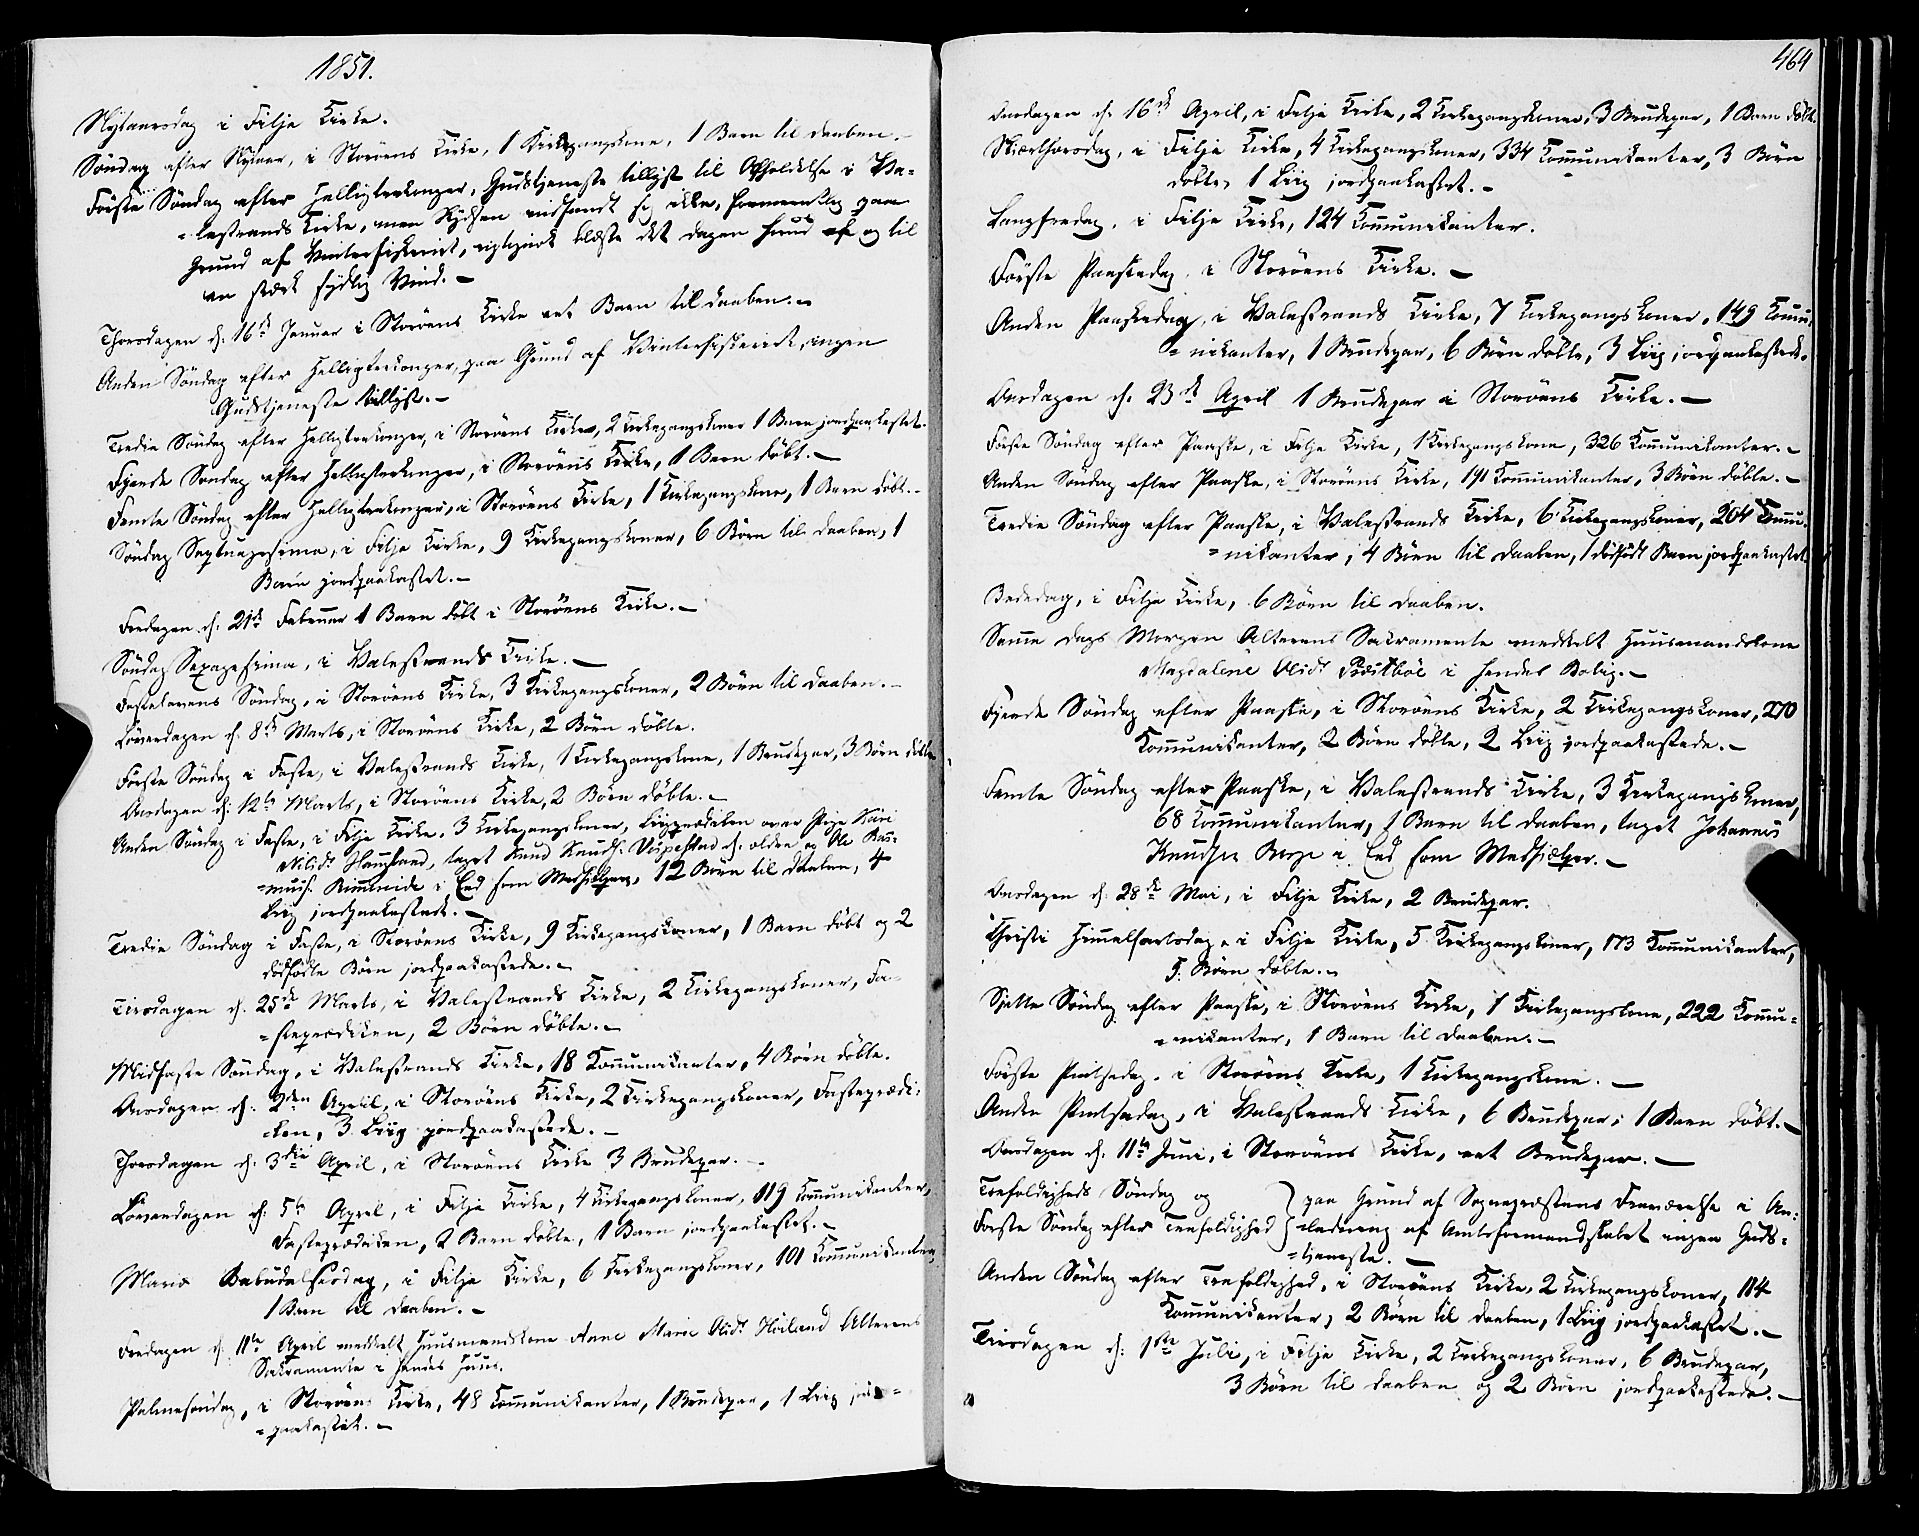 1851.
Nytaarsdag i Fitje Kirke.
Søndag efter Nytaar, i Storöens Kirke, 1 Kirkegangskone, 1 Barn til Daaben.
Förste Söndag efter Helligtrekonger, Gudstjeneste tillyst til Afholdelse i Va-
=lestrands Kirke, men Skydsen indfandt sig ikke, formentlig paa
Grund af Vinterfiskeriet, rigtignok blæste det dagen forud og til
en stærk sydlig Vind.-
Thorsdagen d. 16de Januar i Storöens Kirke eet Barn til Daaben.-
Anden Söndag efter Helligtrekonger, paa Grund af Vinterfiskeriet, ingen
Gudstjeneste tillyst.-
Tredie Söndag efter Helligtrekonger, i Storöens Kirke, 2 Kirkegangskoner 1 Barn jordpaakastet.
Fjerde Söndag efter Helligtrekonger, i Storöens Kirke, 1 Barn döbt.-
Femte Söndag efter Helligtrekonger, i Storöens Kirke, 1 Kirkegangskone, 1 Barn döbt.-
Söndag Septuagesima, i Fitje Kirke, 9 Kirkegangskoner, 6 Börn til Daaben, 1
Barn jordpaakastet.-
Fredagen d. 21de Februar 1 Barn döbt i Storöens Kirke.-
Söndag Sexagesima, i Valestrands Kirke.-
Fastelavens Söndag, i Storöens Kirke, 3 Kirkegangskoner, 2 Börn til Daaben.-
Löverdagen d. 8de Marts, i Storöens Kirke, 2 Börn döbte.
Förste Söndag i Faste, i Valestrands Kirke, 1 Kirkegangskone, 1 Brudepar, 3 Börn döbte
Onsdagen d. 12te Marts, i Storöens Kirke, 2 Börn döbte.-
Anden Söndag i Faste, i Fitje Kirke, 3 Kirkegangskoner, Liigprædiken over Pige Kari
Nilsdr. Haugland, taget Knud Knuds. Vespestad d. ældre og Ole Ras=
=mus. Rimmereide i Eed som Medhjelpere, 12 Börn til Daaben, 4
Liig jordpaakastede.-
Tredie Söndag i Faste, i Storöens Kirke, 9 Kirkegangskoner, 1 Barn döbt og 2
dödfödte Börn jordpaakastede.-
Tirsdagen d. 25de Marts, i Valestrands Kirke, 2 Kirkegangskoner, Fa-
=steprædiken, 2 Börn döbte.-
Midfaste Söndag, i Valestrands Kirke, 18 Kommunikanter, 4 Börn döbte.
Onsdagen d. 2den April, i Storöens Kirke, 2 Kirkegangskoner, Fasteprædi-
ken, 3 Liig jordpaakastede.-
Thorsdagen d. 3die April, i Storöens Kirke 3 Brudepar.-
Löverdagen d. 5te April, i Fitje Kirke, 4 Kirkegangskoner, 119 Kommunikanter,
Fasteprædiken, 2 Barn döbte, 1 Barn jordpaakastet.-
Mariæ Bebudelsesdag, i Fitje Kirke, 6 Kirkegangskoner, 101 Kommunikanter,
1 Barn til Daaben.-
Fredagen d. 11te April meddelt Huusmandskone Anne Marie Nilsdr. Höiland Alterens
Sakramente i hendes Huus.
Palmesöndag, i Storöens Kirke, 48 Kommunikanter, 1 Brudepar, 1 Liig jord=
=paakastet.-
464
Onsdagen d. 16de April, i Fitje Kirke, 2 Kirkegangskoner, 3 Brudepar, 1 Barn döbt.
Skiærthorsdag, i Fitje Kirke, 4 Kirkegangskoner, 334 Kommunikanter, 3 Börn
döbte, 1 Liig jordpaakastet.-
Langfredag, i Fitje Kirke, 124 Kommunikanter.
Förste Paaskedag i Storöens Kirke.-
Anden Paaskedag, i Valestrands Kirke, 7 Kirkegangskoner, 149 Kommu-
=nikanter, 1 Brudepar, 6 Börn döbte, 3 Liig jordpaakastede.
Onsdagen d. 23de April 1 Brudepar i Storöens Kirke.-
Förste Söndag efter Paaske, i Fitje Kirke, 1 Kirkegangskone, 326 Kommunikanter.-
Anden Söndag efter Paaske, i Storöens Kirke, 191 Kommunikanter, 3 Börn döbte.-
Tredie Söndag efter Paaske, i Valestrands Kirke, 6 Kirkegangskoner, 204 Kommu-
=nikanter, 4 Börn til Daaben, 1 dödfödt Barn jordpaakastet.
Bededag, i Fitje Kirke, 6 Börn til Daaben.
Samme Dags Morgen Alterens Sakramente meddelt Huusmandskone
Magdalene Olsdr. Præstböe i hendes Bolig.-
Fjerde Söndag efter Paaske, i Storöens Kirke, 2 Kirkegangskoner, 270
Kommunikanter, 2 Börn döbte, 2 Liig jordpaakastede.-
Femte Söndag efter Paaske, i Valestrands Kirke, 3 Kirkegangskoner,
68 Kommunikanter, 1 Barn til Daaben, taget Johannes
Knudsen Berge i Eed som Medhjælper.-
Onsdagen d. 28de Mai, i Fitje Kirke, 2 Brudepar.
Christi Himmelfartsdag, i Fitje Kirke, 5 Kirkegangskoner, 173 Kommunikanter,
5 Börn döbte.-
Sjette Söndag efter Paaske, i Storöens Kirke, 1 Kirkegangskone, 222 Kommu=
=nikanter, 1 Barn til Daaben.-
Förste Pintsedag, i Storöens Kirke, 1 Kirkegangskone.-
Anden Pintsedag, i Valestrands Kirke, 6 Brudepar, 1 Barn döbt.-
Onsdagen d. 11te Juni, i Storöens Kirke, eet Brudepar.-
Trefoldigheds Söndag og
Förste Söndag efter Trefoldighed
paa Grund af Sognepræstens Fraværelse i An-
=ledning af Amtsformandskabet ingen Guds=
=tjeneste.-
Anden Söndag efter Trefoldighed, i Storöens Kirke, 2 Kirkegangskoner, 114
Kommunikanter, 2 Börn til Daaben, 1 Liig jordpaakastet.-
Tirsdagen d. 1ste Juli, i Fitje Kirke, 2 Kirkegangskoner, 6 Brudepar,
3 Börn til Daaben og 2 Börn jordpaakastede.-